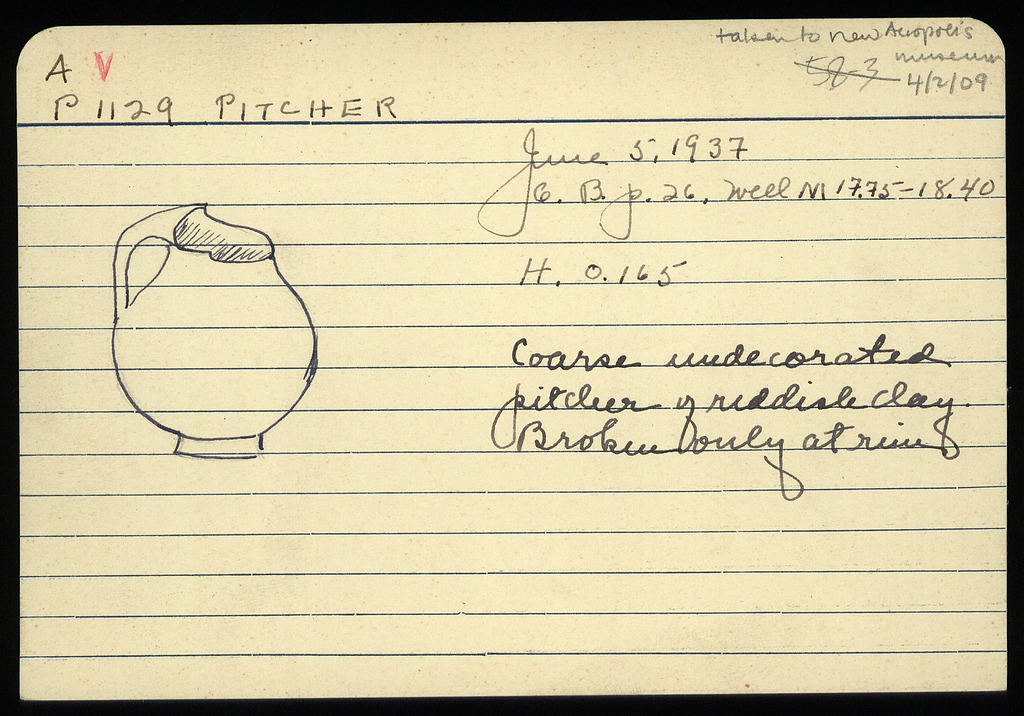 taken to new Acropolis
museum
A V
58-3 4/2/09
P 1129 PITCHER
June 5, 1937
G. B. p. 26, Well M 17.75-18.40
H. 0.165
Coarse undecorated
pitcher of reddish clay.
Broken only at rim